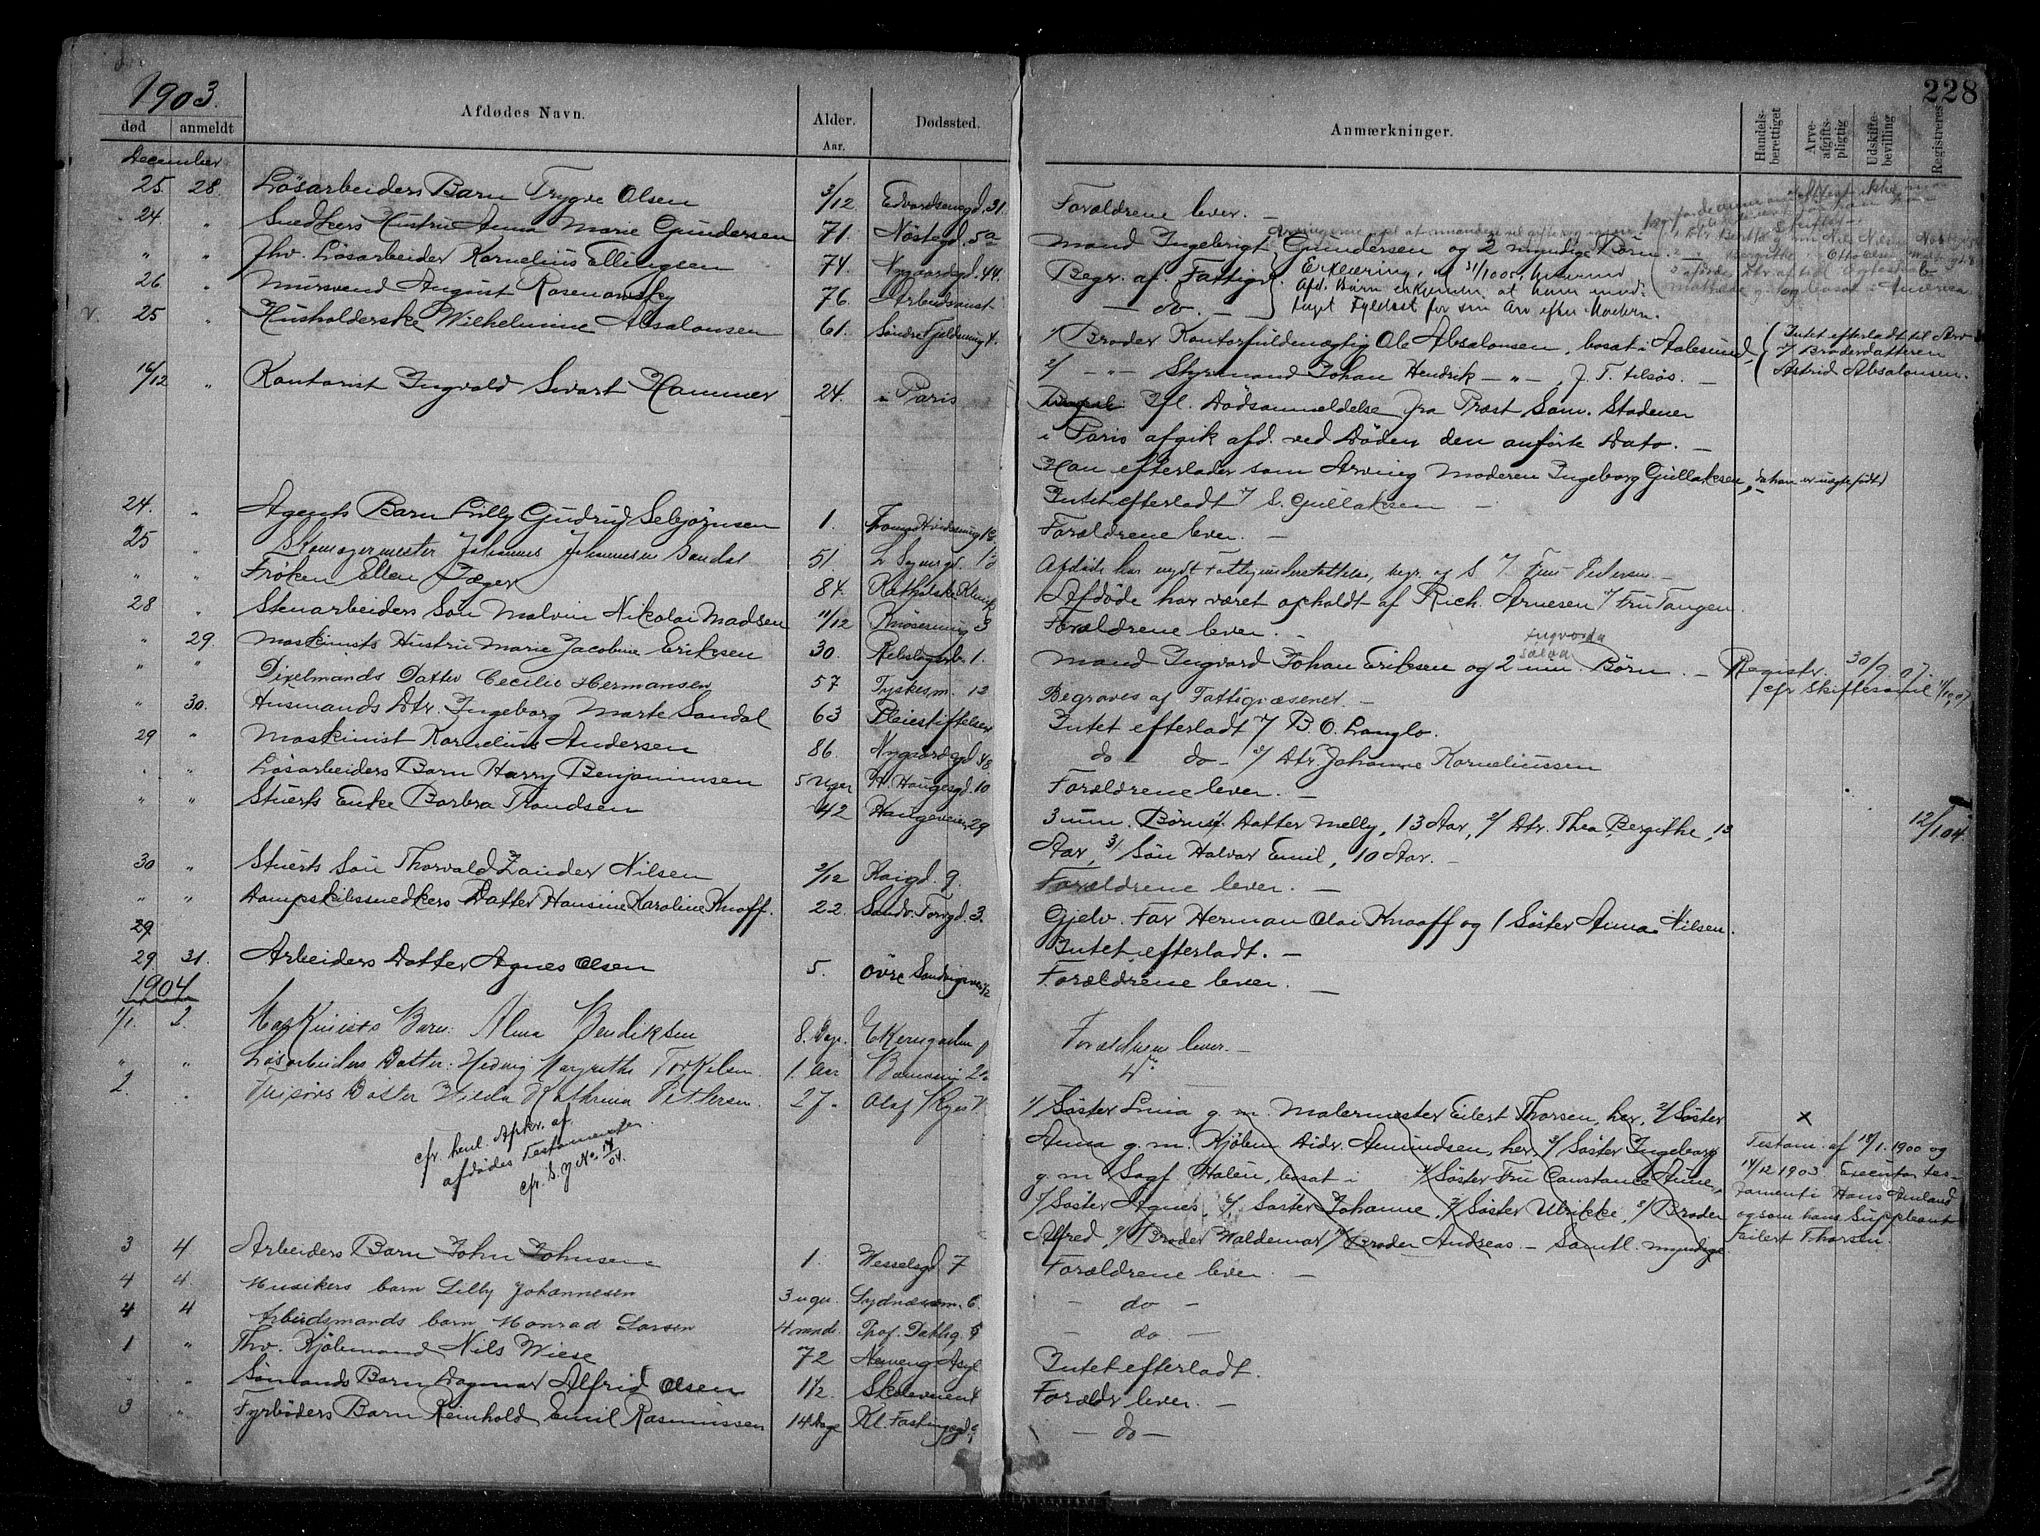 228
1903.
død anmeldt Afdødes Navn. Alder. Aar. Dødssted. Anmærkninger. Handels-berettiget Arve-afgifts-pligtig Udskifte-bevilling Registreres
December
25. 28. Løsarbeiders Barn Trygve Olsen 3/12 Edvardsensgd. 31. Forældrene lever. —
24. " Snedkers Hustru Anna Marie Gundersen 71. Nøstegd. 52 Mand Ingebrigt Gundersen og 2 myndige Børn.
" " Fhv. Løsarbeider Kornelius Ellingsen 74. Nygaardsgd. 44. Begr. af Fattigv.
Erklæring, af 31/10 05,
Afd. Børn erkjender at have mod-
taget Fyldest for sin Arv efter Moderen.
26 " Mursvend August Rosenowsky 76. Arbeidsanst — do. —
v. 25 " Husholderske Wilhelmine Absalonsen 61. Søndre Fjeldsmug 4. 1/ Broder Kontorfuldmægtig Ole Absalonsen, bosat i Aalesund,
2/ — " — Styrmand Johan Hendrik — " —, f. T. tilsøs. —
Intet efterladt til Arv
t/ Broderdatteren
Astrid Absalonsen.
16/12 " Kontorist Ingvald Swart Hammer 24. i Paris Ifl. Dødsanmeldelse fra Præst Sam. Stadener
i Paris afgik afd. ved Døden den anførte Dato. —
Han efterlader som Arving Moderen Ingeborg Gullaksen, da han er uægtefødt
Intet efterladt t/ S. Gullaksen —
24. " Agents Barn Lilly Gudrud Sebjørnsen 1. Forældrene lever. —
25 " Skomagermester Johannes Johannesen Sandal 51. Afdøde har nydt Fattigunderstøttelse, begr. af S t/ Fru Pedersen. —
" " Frøken Ellen Jæger 84. Katholske Klinik Afdøde har været opholdt af Rich. Arnesen t/ Fru Tangen.
28 " Stenarbeiders Søn Malvin Nikolai Madsen 11/12 Knøsesmug 3 Forældrene lever. —
" 29. Maskinists Hustru Marie Jacobine Eriksen 30. Rebslagerb. 1. Mand Ingvard Johan Eriksen og 2 um. Børn. — Registr. 30/9 07.
cfr Skiftesamil
" " Dixelmands Datter Cecilie Hermansen 57 Tyskesm. 12 Begraves af Fattigvæsenet. —
" 30. Husmands Dtr. Ingeborg Marte Sandal 63 Pleiestiftelsen Intet efterladt t/ B. O. Langlo.
29 " Maskinist Kornelius Andersen 86. Nygaardsgd. 48. do — do — t/ Dtr. Johanne Korneliussen
" " Løsarbeiders Barn Harry Benjaminsen 5 Uger H. Haugesgd. 10 Forældrene lever. —
" " Stuerts Enke Barbra Trondsen 42 Haugeveien 29 3 um. Børn: 1/ Datter Melly, 13 Aar, 2/ Dtr. Thea Bergithe, 12
Aar, 3/ Søn Halvar Emil, 10 Aar. — 12/1 04.
30 " Stuerts Søn Thorvald Zander Nilsen 2/12 Kaigd. 9. Forældrene lever. —
" " Dampskibssnedkers Datter Hansine Karoline Knaff. 22. Sandv. Torvgd. 3. Gjelv. Far Herman Olai Knaaff og 1 Søster Anna Nilsen.
29 Intet efterladt. —
29 31. Arbeiders Datter Agnes Olsen 5. Øvre Sandvigsvei Forældrene lever. —
1904
1/1. 2. Maskinists Barn: Alma Bendiksen 8. Dage. Ekrengaden Forældrene lever. —
" " Løsarbeiders Datter: Hedvig Margrethe Torkelsen. 1. Aar do
2. " Datter Hilda Kathrina Pettersen. 27. Olaf Kyrres 1/ Søster Lina g. m. Malermester Eilert Thorsen, her, 2/ Søster
Anna g. m. Kjøbm Didr. Amundsen, her, 3/ Søster Ingeborg
g. m Sagf. Halen, bosat i 4/ Søster Fru Constance Aune,
5/ Søster Agnes, 6/ Søster Johanne, 7/ Søster Ulrikke, 8/ Broder
Alfred, 9/ Broder Waldemar, 10/ Broder Andreas. — Samtl. myndige
cfr. henl. Afskr. af
afdødes Testamenter.
cfr. S. J No. 17/04.
x
Testam. af 18/1. 1900 og
14/12 1903. Executor tes-
tamenti Hans Amland
og som hans Suppleant
Eilert Thorsen.
3 4 Arbeiders Barn John Johnsen 1. Wesselsgd. 7 Forældrene lever. —
4 4. Musikers barn Lilly Johannesen 3 uger Sydnæssm. 6. — do —
4 4 Arbeidsmands barn Monrad Larsen 4 mndr. Prof. Dahlsg. — do —
1 " Fhv. Kjøbmand Nils Wiese 72 Intet efterladt.
" " Sømands Barn Dagmar Alfrid Olsen 1½. Skoleveien 4 Forældr. lever. —
3 " Fyrbøders Barn Reinhold Emil Rasmussen 14 Dage Kl. Fastingsgd. — do —